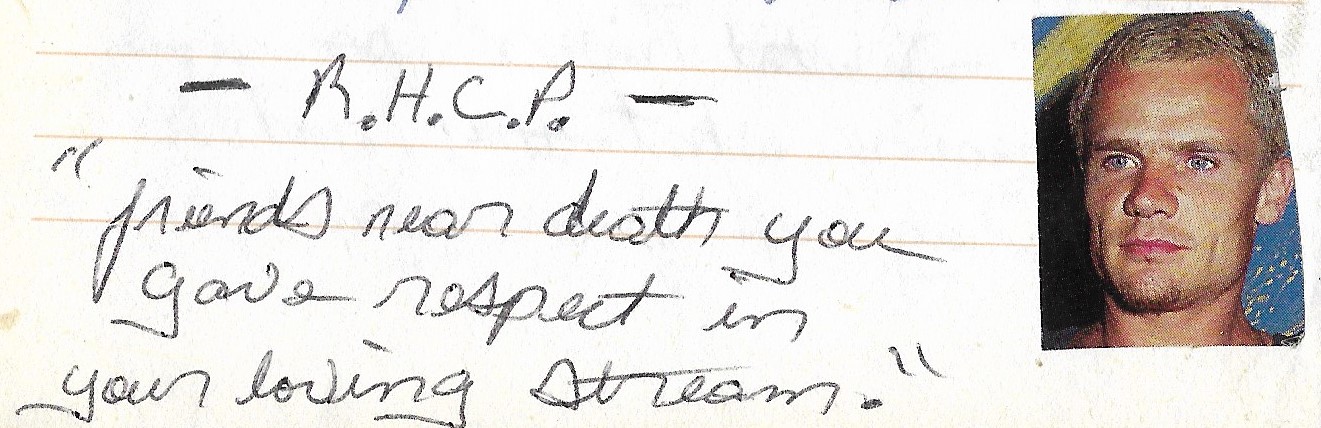 — R.H.C.P. —
"friends near death you
gave respect in
your loving stream."